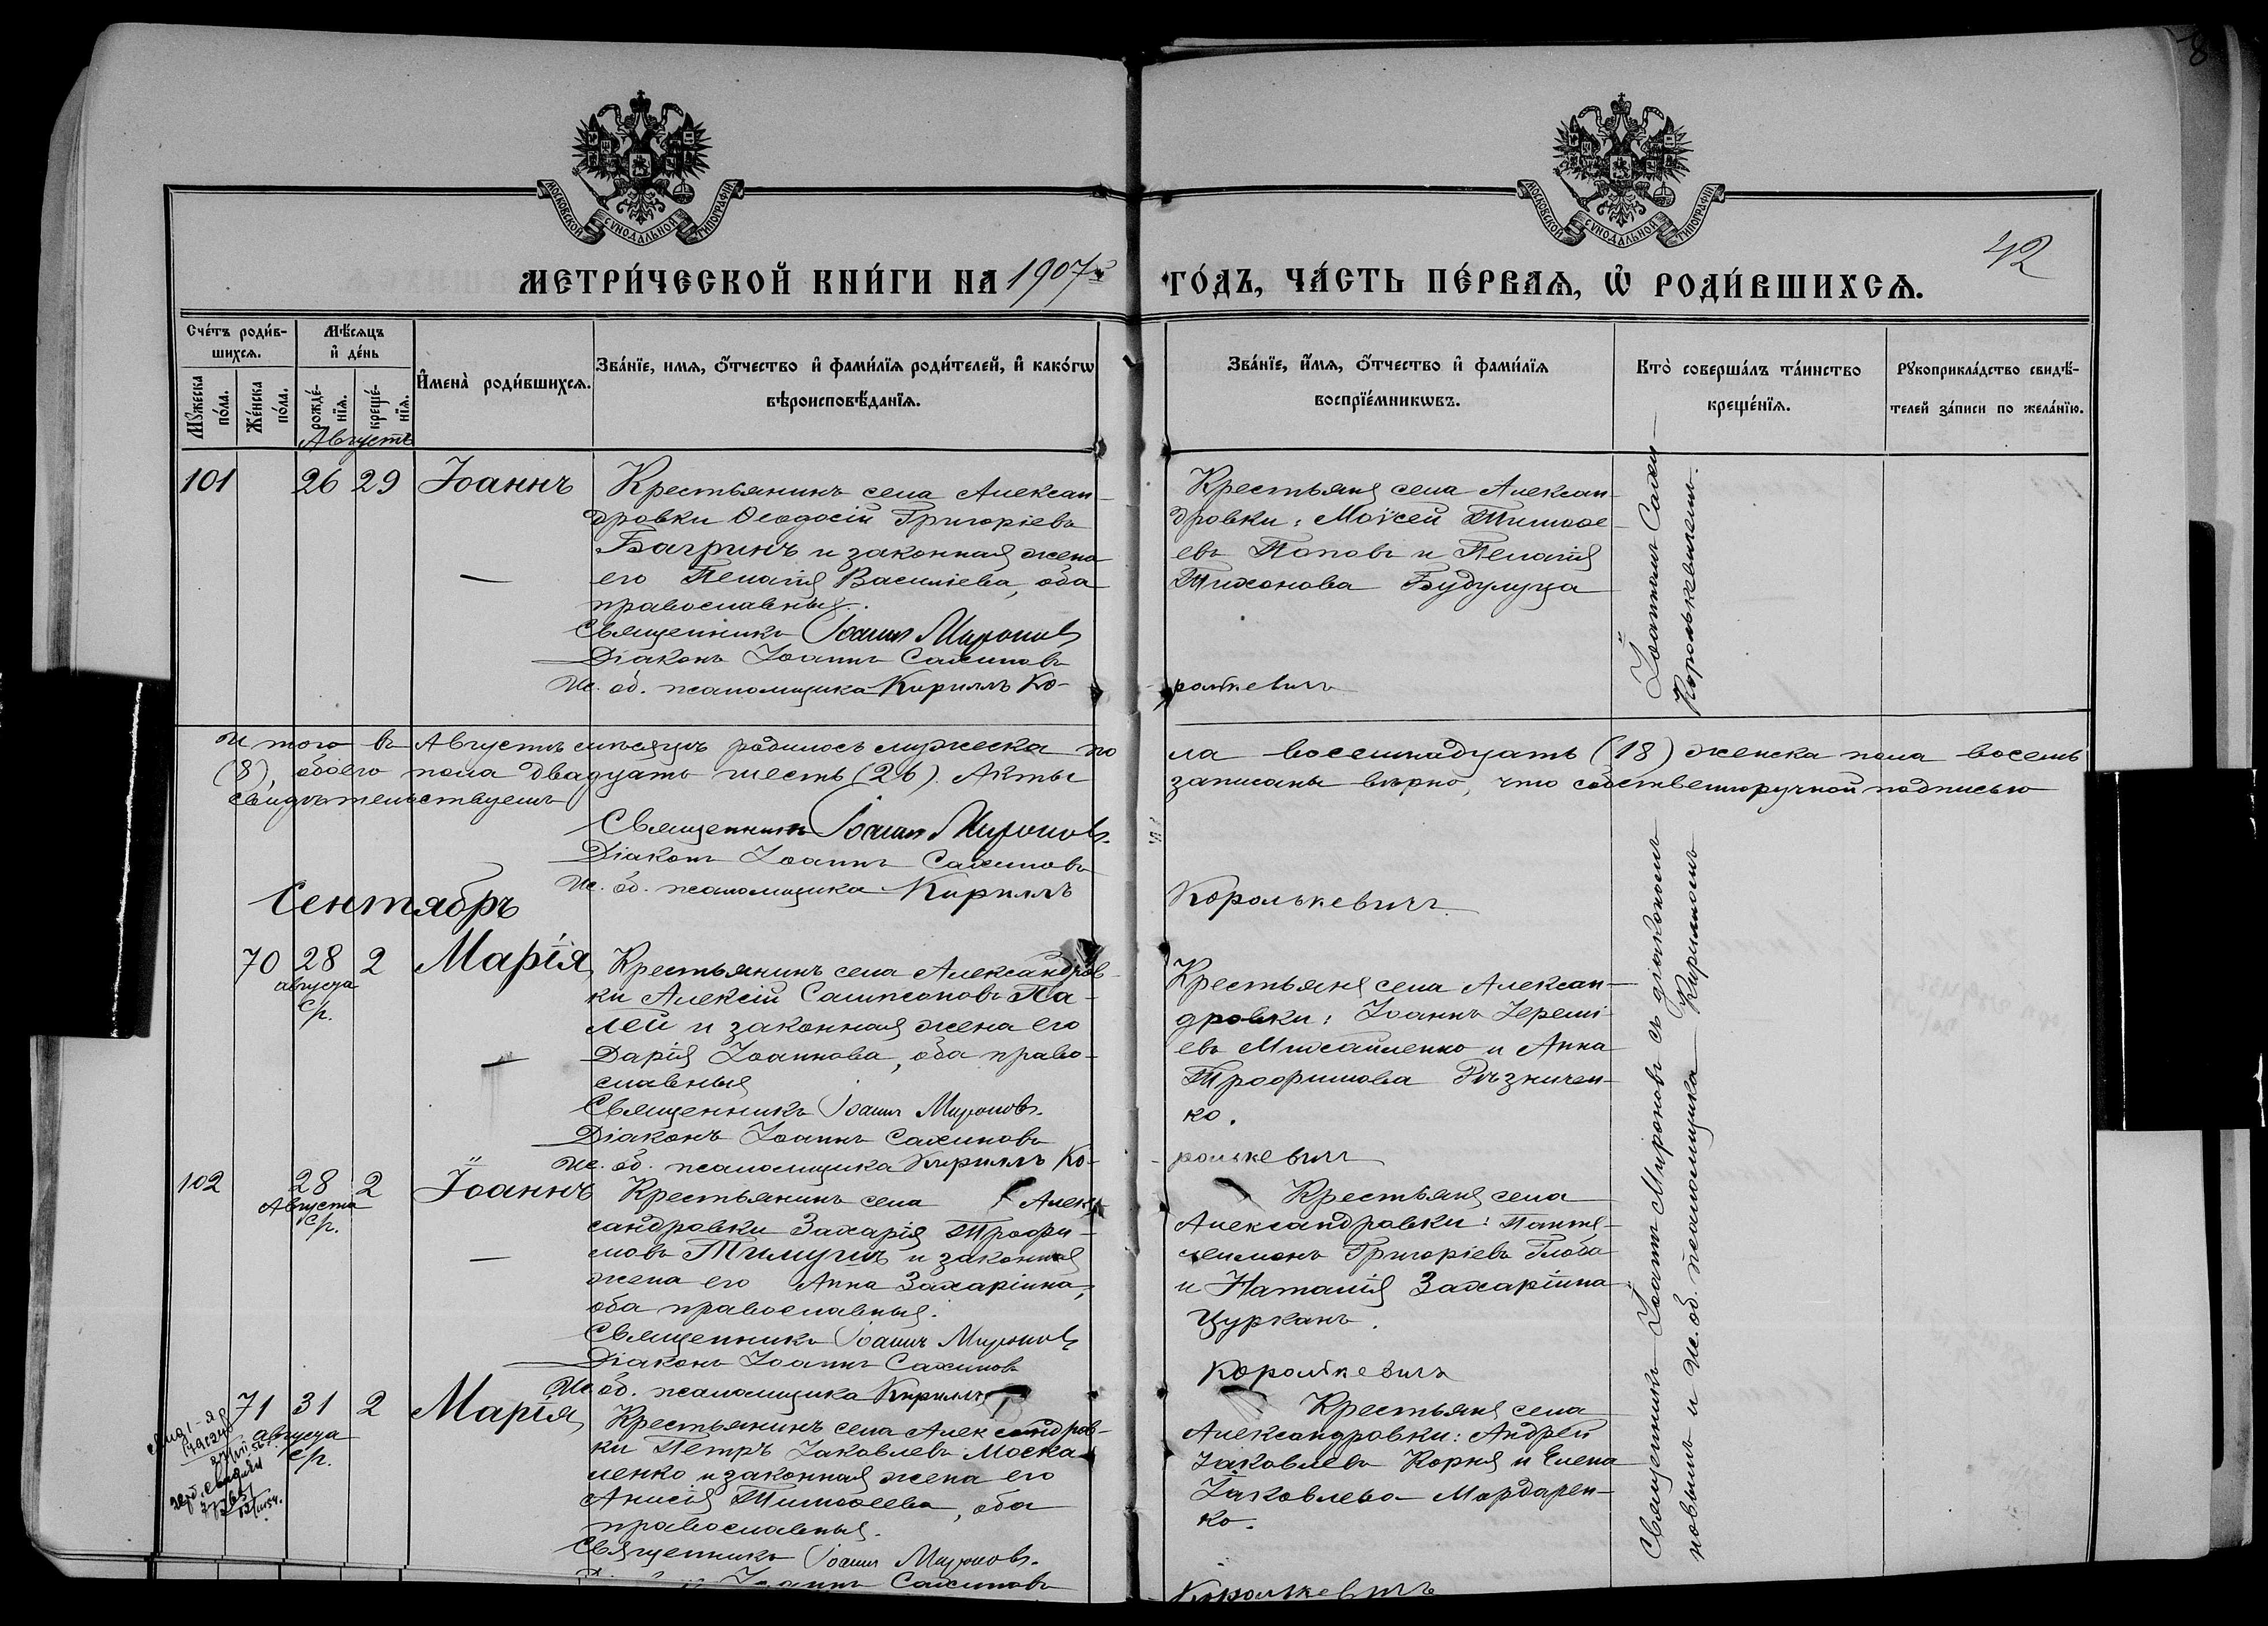 8
МОСКОВСКОЙ СѴНОДАЛЬНОЙ ТИПОГРАФІИ
МОСКОВСКОЙ СѴНОДАЛЬНОЙ ТИПОГРАФІИ
42
МЕТРИ́ЧЕСКОЙ КНИ́ГИ НА 1907й ГО́ДЪ, ЧА́СТЬ ПЕ́РВАѦ, Ѡ҆ РОДИ́ВШИХСѦ.
Сче́тъ роди́в-
шихсѧ.
Мꙋ́жеска по́ла.
Же́нска по́ла.
Мѣ́сѧцъ
и҆ де́нь
рожде́-нїѧ.
креще́-нїѧ.
И҆мена̀ роди́вшихсѧ.
Зва́нїе, имѧ, ѻ҆́тчество и҆ фами́лїѧ роди́телей, и҆ како́гѡ
вѣроисповѣ́данїѧ.
Зва́нїе, и҆́мѧ, ѻ҆́тчество и҆ фами́лїѧ
воспрїе́мникѡвъ.
Кто̀ соверша́лъ та́инство
креще́нїѧ.
Рꙋкоприкла́дство свидѣ́-
телей за́писи по жела́нїю.
Августъ
101 26 29 Іоаннъ
Крестьянинъ села Алексан-
дровки Ѳеодосій Григоріевъ
Багринъ и законная жена
его Пелагія Василіева, оба
православныя.
Священникъ Іоаннъ Мироновъ
Діаконъ Іоаннъ Сахиновъ
Ис. об. псаломщика Кирилъ Ко-
Крестьяне села Алексан-
дровки: Моѵсей Тимоѳе-
евъ Поповъ и Пелагія
Тихонова Будулуца
ролькевичъ
Королькевичемъ.
Итого въ Августѣ мѣсяцѣ родилось мужеска по
ла восемнадцать (18) женска пола восемь
(8), обоего пола двадцать шесть (26). Акты
записаны вѣрно, что собственноручной подписью
свидѣтельствуемъ
Священникъ Іоаннъ Мироновъ.
Діаконъ Іоаннъ Сахиновъ
Ис. об. псаломщика Кирилъ
Королькевичъ.
Сентябрь
70 28 2 Марія
августа
ср.
Крестьянинъ села Александров-
ки Алексій Сампсоновъ Па-
лей и законная жена его
Дарія Іоаннова, оба право-
славныя
Священникъ Іоаннъ Мироновъ.
Діаконъ Іоаннъ Сахиновъ
Ис. об. псаломщика Кирилъ Ко-
Крестьяне села Алексан-
дровки: Іоаннъ Іеремі-
евъ Михайленко и Анна
Трофимова Рѣзничен-
ко.
ролькевичъ
102 28 2 Іоаннъ
Августа
ср.
Крестьянинъ села Алек-
сандровки Захарія Трофи-
мовъ Тимучъ и законная
жена его Анна Захаріина,
оба православныя.
Священникъ Іоаннъ Мироновъ
Діаконъ Іоаннъ Сахиновъ
Ис. об. псаломщика Кирилъ
Крестьяне села
Александровки: Панте-
леимонъ Григоріевъ Глоба
и Наталія Захаріина
Цурканъ.
Королькевичъ
71 31 2 Марія
августа
ср.
Крестьянинъ села Александров-
ки Петръ Іаковлевъ Моска-
ленко и законная жена его
Анисія Тимоѳеева, оба
православныя.
Священникъ Іоаннъ Мироновъ.
Іоаннъ Сахиновъ
Крестьяне села
Александровки: Андрей
Іаковлевъ Корня и Елена
Іаковлева Мардарен-
ко.
Королькевичъ
Священникъ Іоаннъ Мироновъ съ діакономъ Іоанномъ Сахи-
новымъ и Ис. об. псаломщика Кириломъ